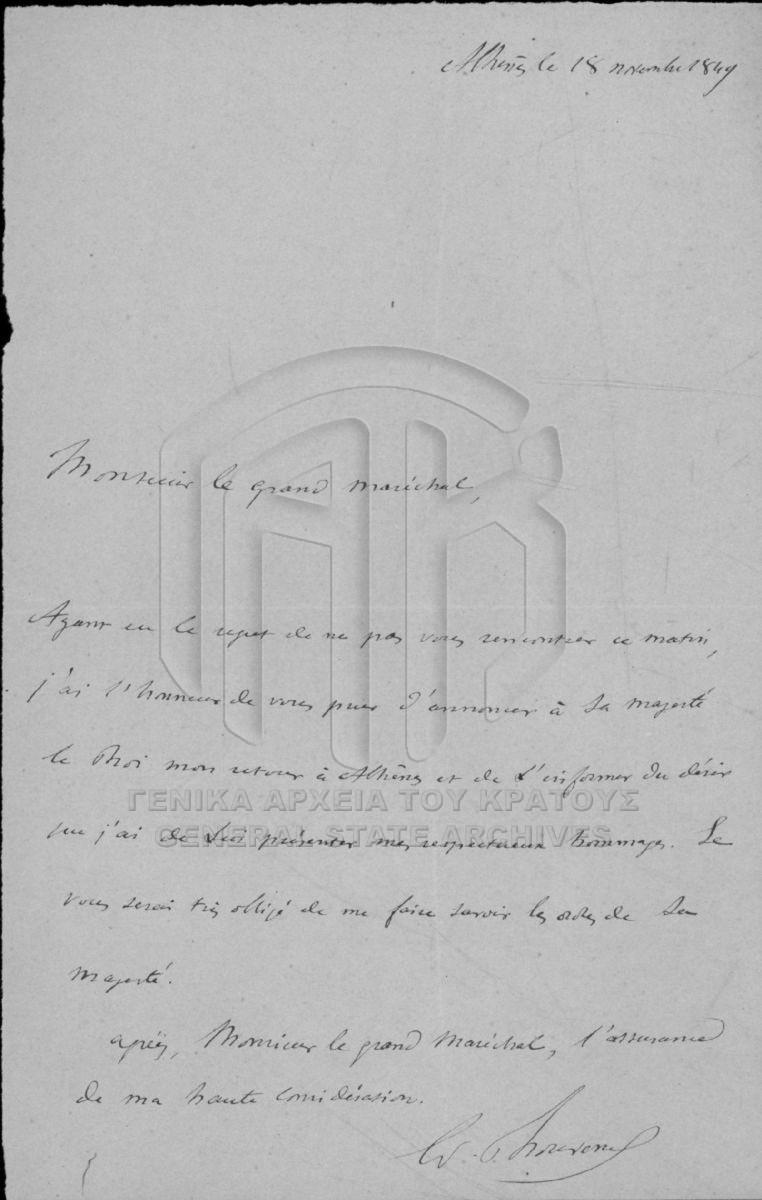 Athènes le 18 novembre 1849
Monsieur le grand maréchal,
Ayant eu le regret de ne pas vous rencontrer ce matin,
j'ai l'honneur de vous prier d'annoncer à Sa Majesté
le Roi mon retour à Athènes et de L'informer du désir
que j'ai de Lui présenter mes respectueux hommages. Je
ΓΕΝΙΚΑ ΑΡΧΕΙΑ ΤΟΥ ΚΡΑΤΟΥΣ
GENERAL STATE ARCHIVES
vous serai très obligé de me faire savoir les ordres de Sa
Majesté.
agréez, Monsieur le grand Maréchal, l'assurance
de ma haute considération.
Thouvenel